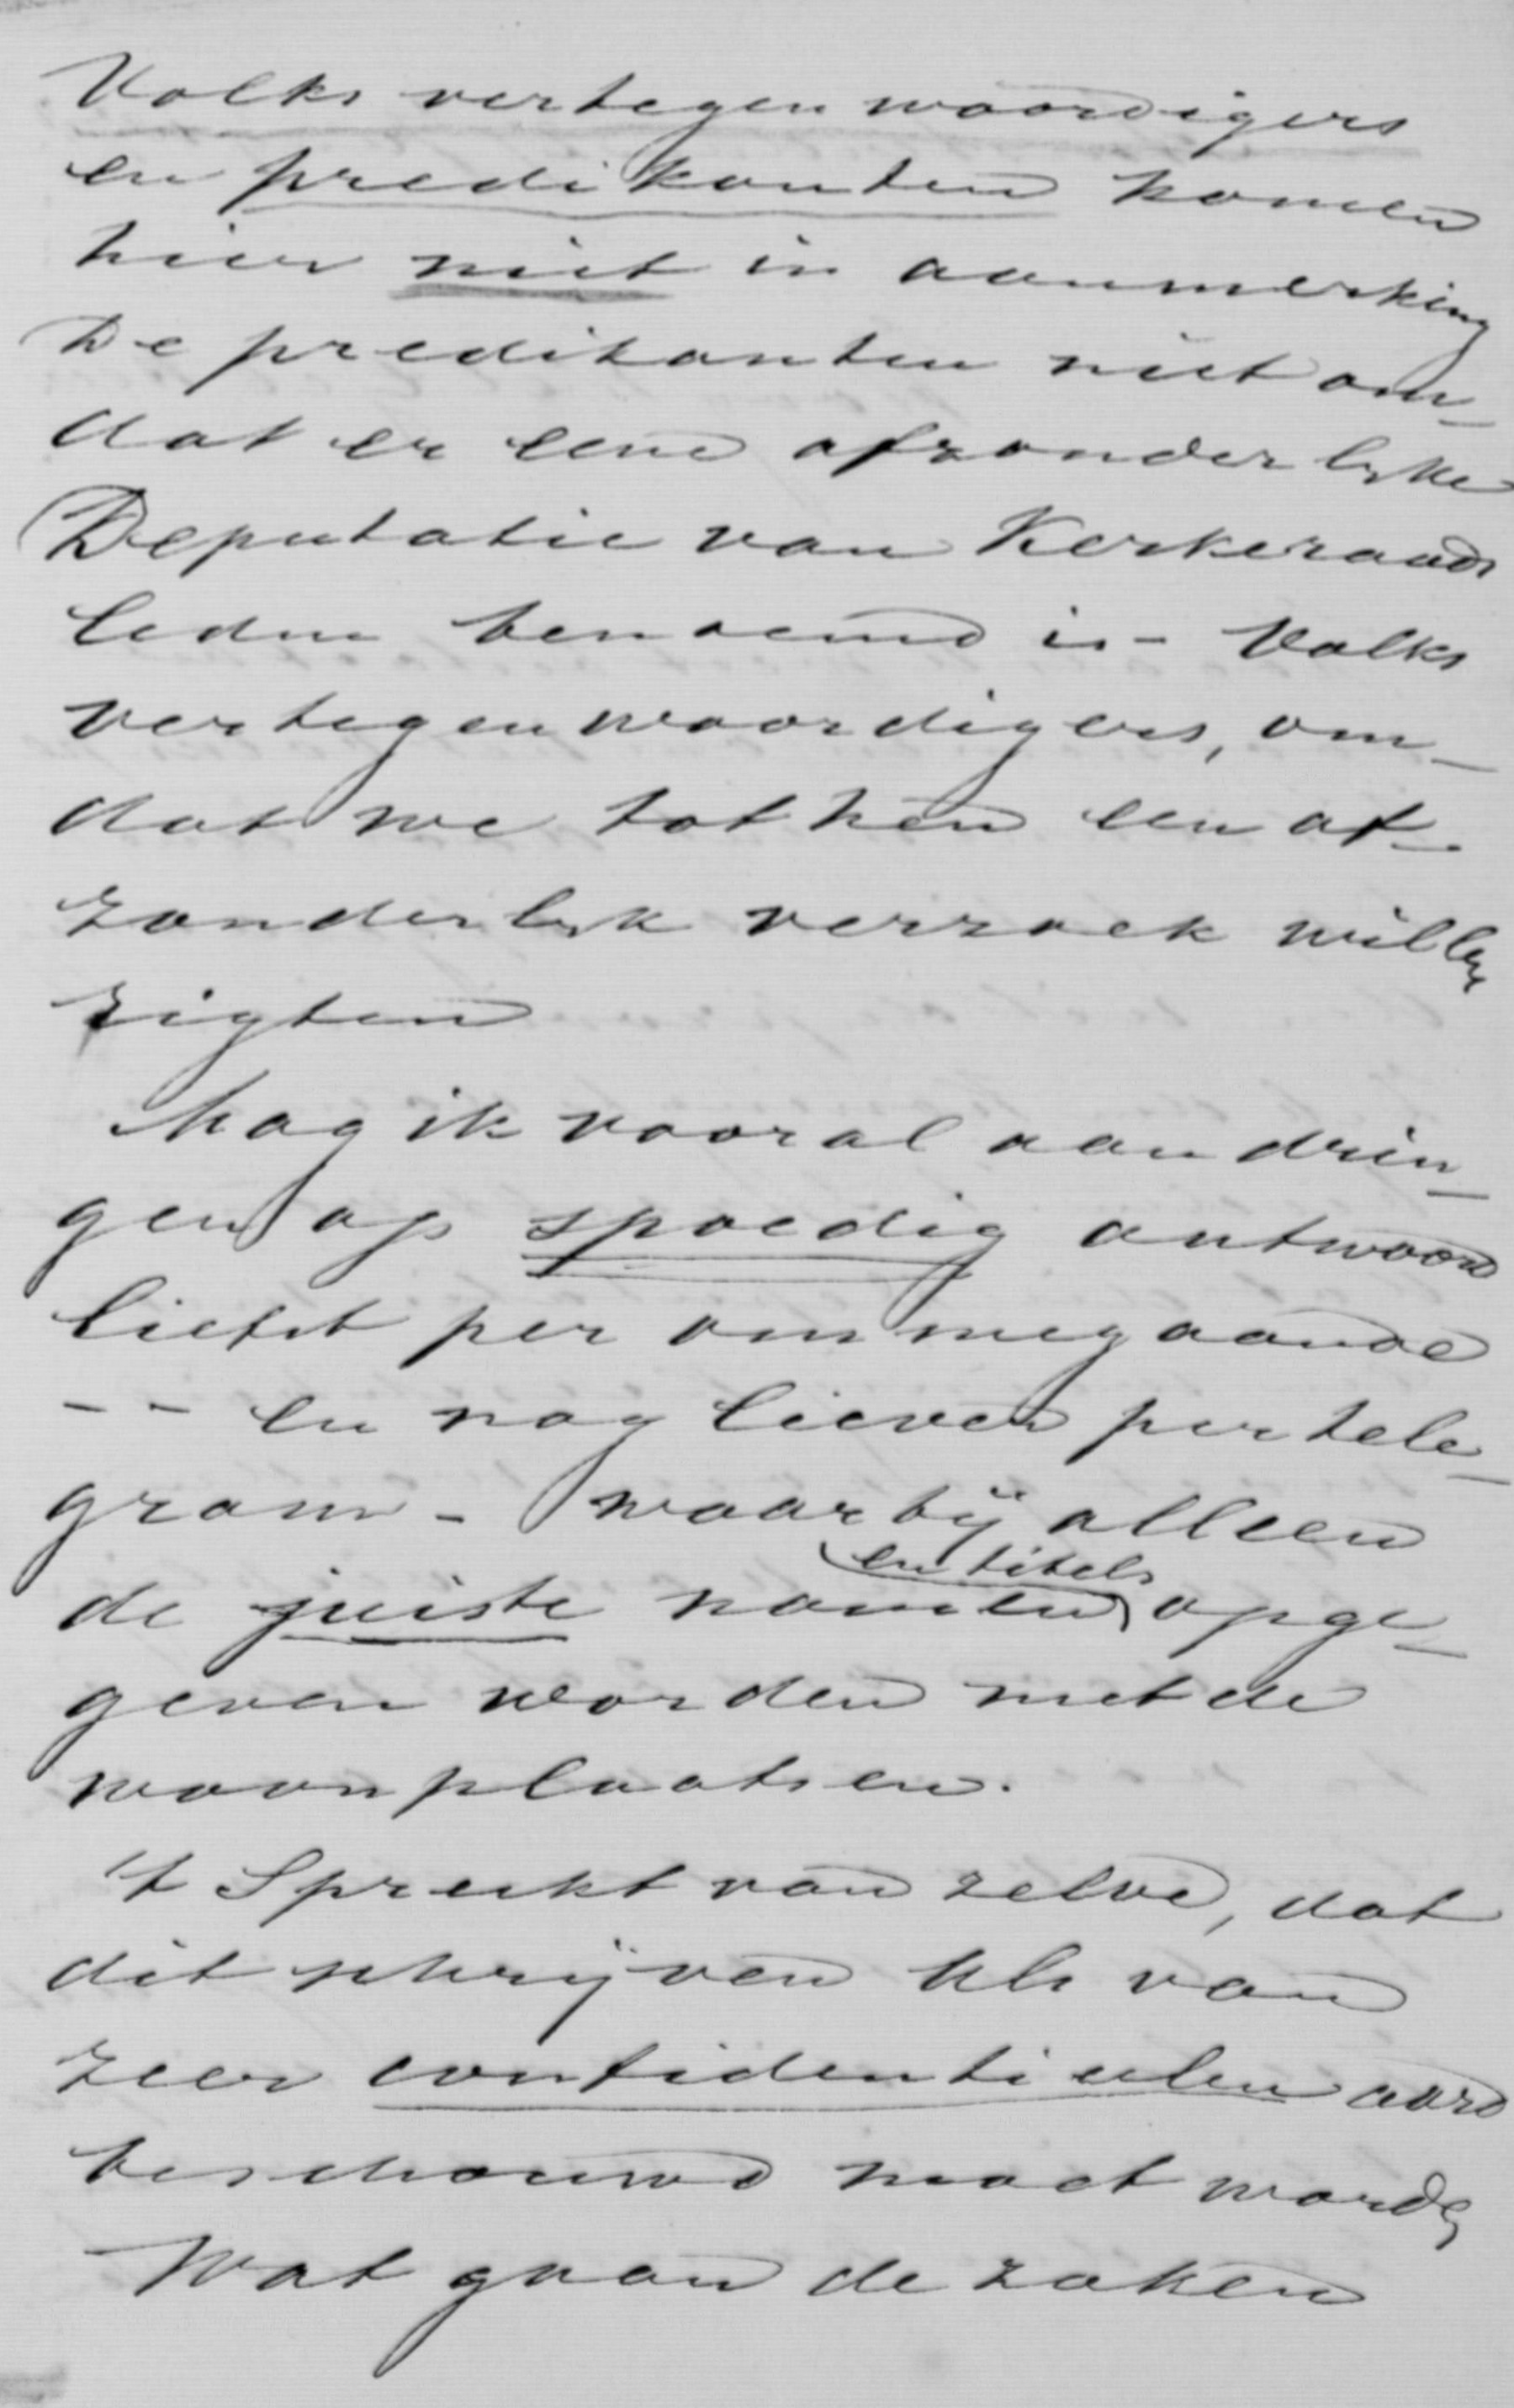 Volks vertegenwoordigers
en predikanten komen
hier niet in aanmerking
De predikanten niet om-
dat er eene afzonderlyke
Deputatie van Kerkeraads
leden benoemd is - Volks
vertegenwoordigers, om-
dat we tot hen een af-
zonderlyk verzoek willen
rigten
Mag ik vooral aandrin-
gen op spoedig antwoord
liefst per ommegaande
-- en nog liever per tele-
gram - waarbij alleen
en titels
de juiste namen opge-
geven worden met de
woonplaatsen.
't Spreekt van zelve, dat
dit schrijven als van
zeer confidentieelen aard
beschouwd moet worden
Wat gaan de zaken